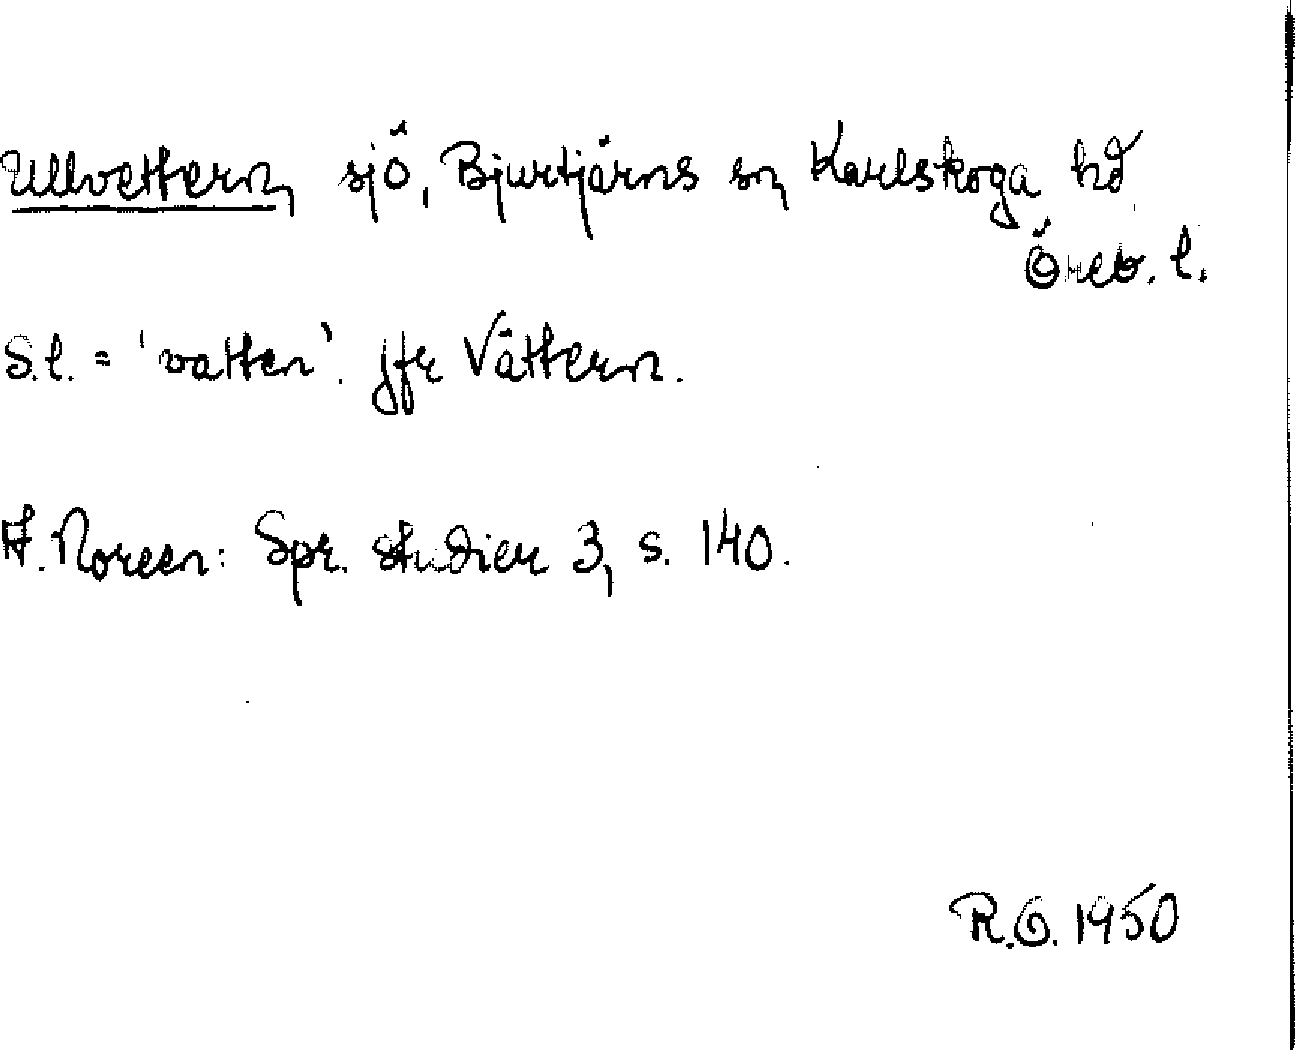 Ullvettern, sjö, Bjurtjärns sn, Karlskoga hd
Öreb. l.
S.l. = 'vatten'. Jfr Vättern.
A. Noreen: Spr. studier 3, s. 140.
R.O. 1950